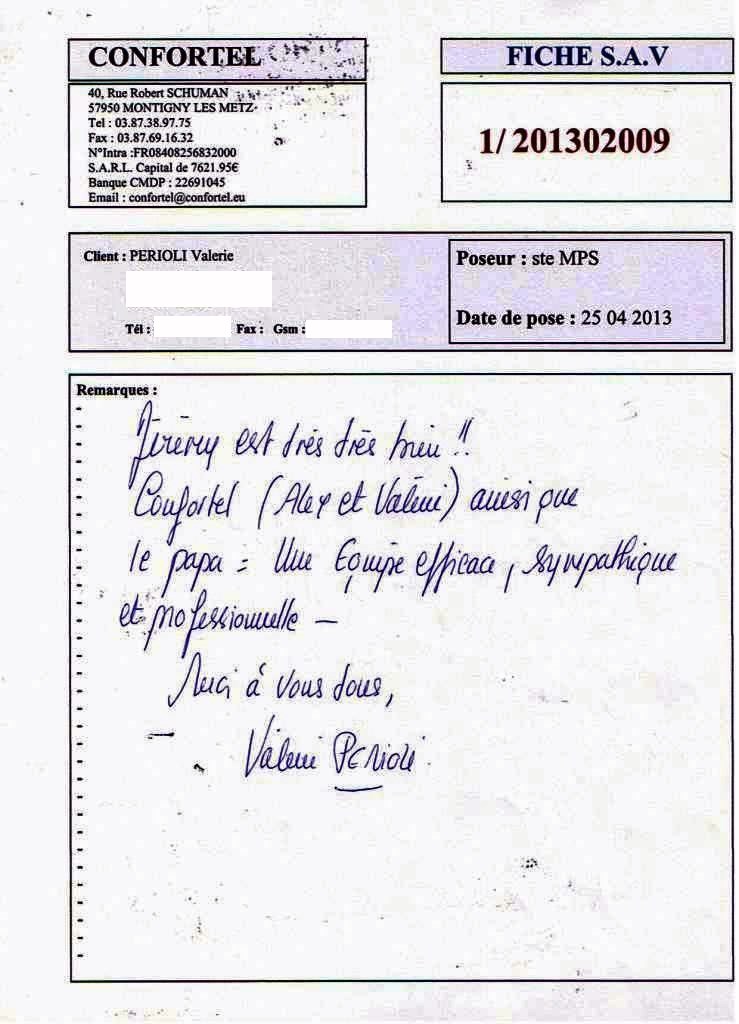 CONFORTEL
40, Rue Robert SCHUMAN
57950 MONTIGNY LES METZ
Tel : 03.87.38.97.75
Fax : 03.87.69.16.32
N°Intra :FR08408256832000
S.A.R.L. Capital de 7621.95€
Banque CMDP : 22691045
Email : confortel@confortel.eu
FICHE S.A.V
1/ 201302009
Client : PERIOLI Valerie
Tél : Fax : Gsm :
Poseur : ste MPS
Date de pose : 25 04 2013
Remarques :
Jérémy est très très bien !!
Confortel (Alex et Valérie) ainsi que
le papa = Une Equipe efficace, sympathique
et professionnelle —
Merci à vous tous,
Valérie PERIOLI